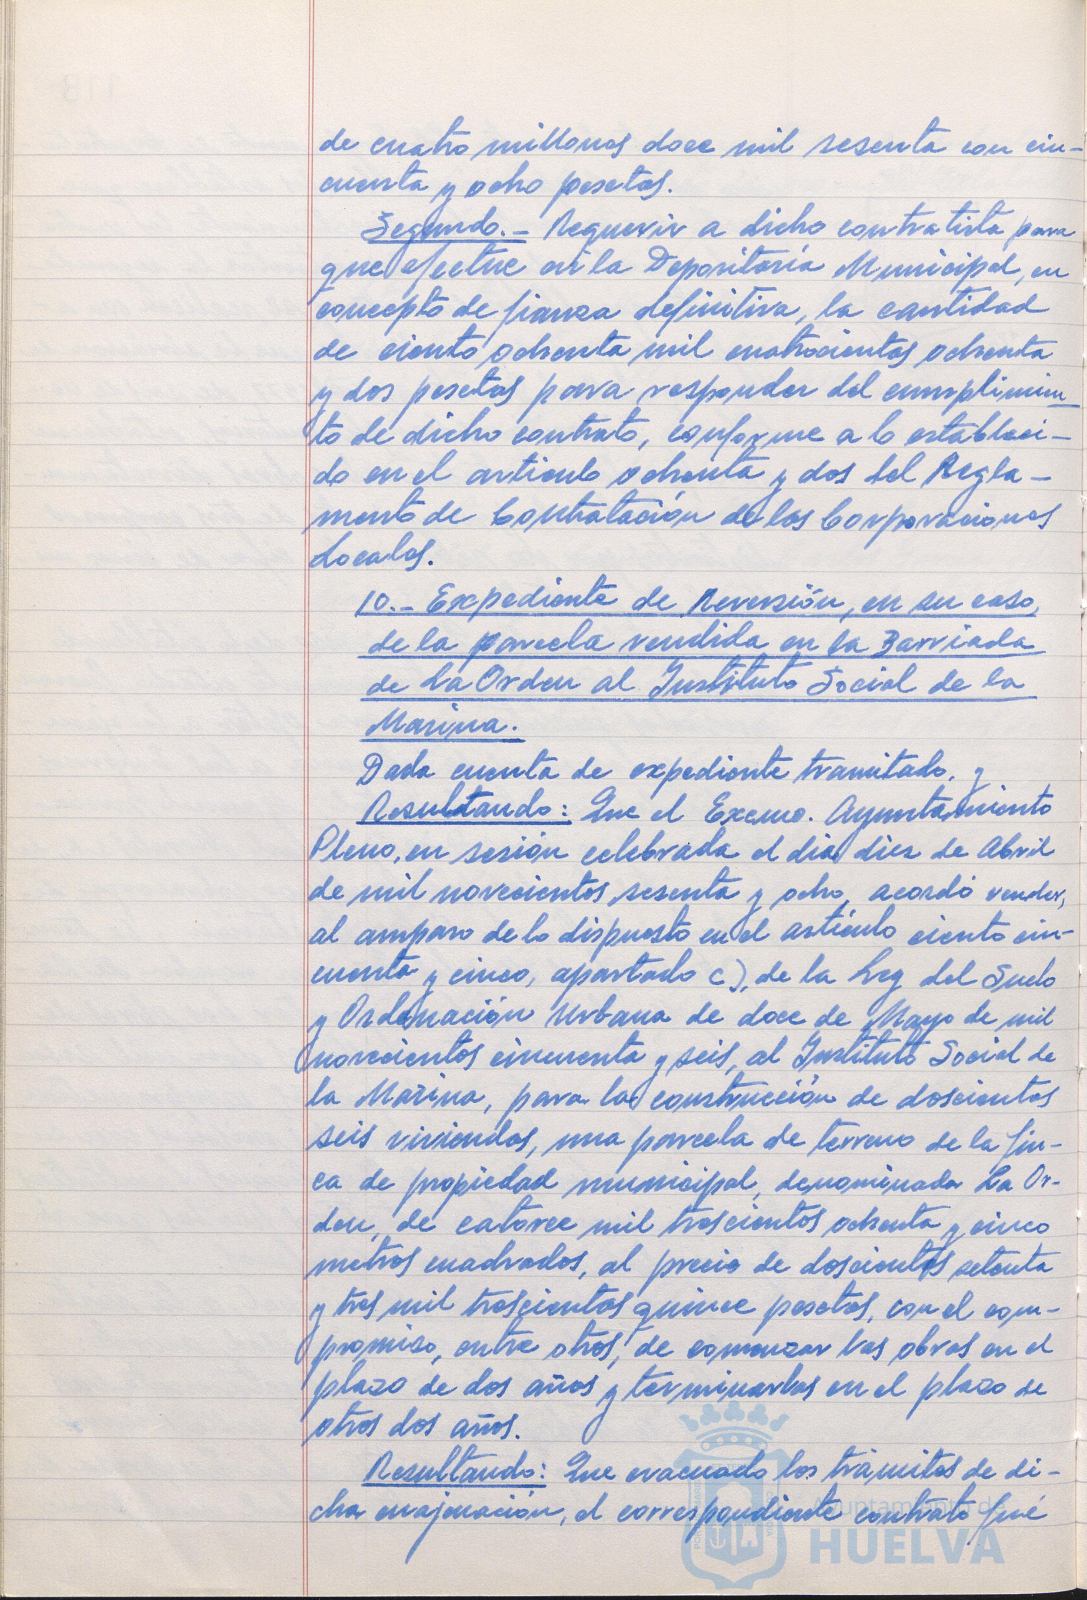 de cuatro millones doce mil sesenta con cin-
cuenta y ocho pesetas.
Segundo.- Requerir a dicho contratista para
que efectue en la Depositaría Municipal, en
concepto de fianza definitiva, la cantidad
de ciento ochenta mil cuatrocientas ochenta
y dos pesetas para responder del cumplimien-
to de dicho contrato, conforme a lo estableci-
do en el articulo ochenta y dos del Regla-
mento de Contratación de las Corporaciones
Locales.
10.- Expediente de Reversión, en su caso,
de la parcela vendida en la Barriada
de La Orden al Instituto Social de la
Marina.
Dada cuenta de expediente tramitado, y
Resultando: Que el Excmo. Ayuntamiento
Pleno, en sesión celebrada el dia diez de Abril
de mil novecientos sesenta y ocho, acordó vender,
al amparo de lo dispuesto en el artículo ciento cin-
cuenta y cinco, apartado c), de la Ley del Suelo
y Ordenación Urbana de doce de Mayo de mil
novecientos cincuenta y seis, al Instituto Social de
la Marina, para la construcción de doscientas
seis viviendas, una parcela de terreno de la fin-
ca de propiedad municipal, denominada La Or-
den, de catorce mil trescientos ochenta y cinco
metros cuadrados, al precio de doscientas setenta
y tres mil trescientas quince pesetas, con el com-
promiso, entre otros, de comenzar las obras en el
plazo de dos años y terminarlas en el plazo de
otros dos años.
Resultando: Que evacuado los trámites de di-
cha enajenación, el correspondiente contrato fué
Ayuntamiento de
HUELVA